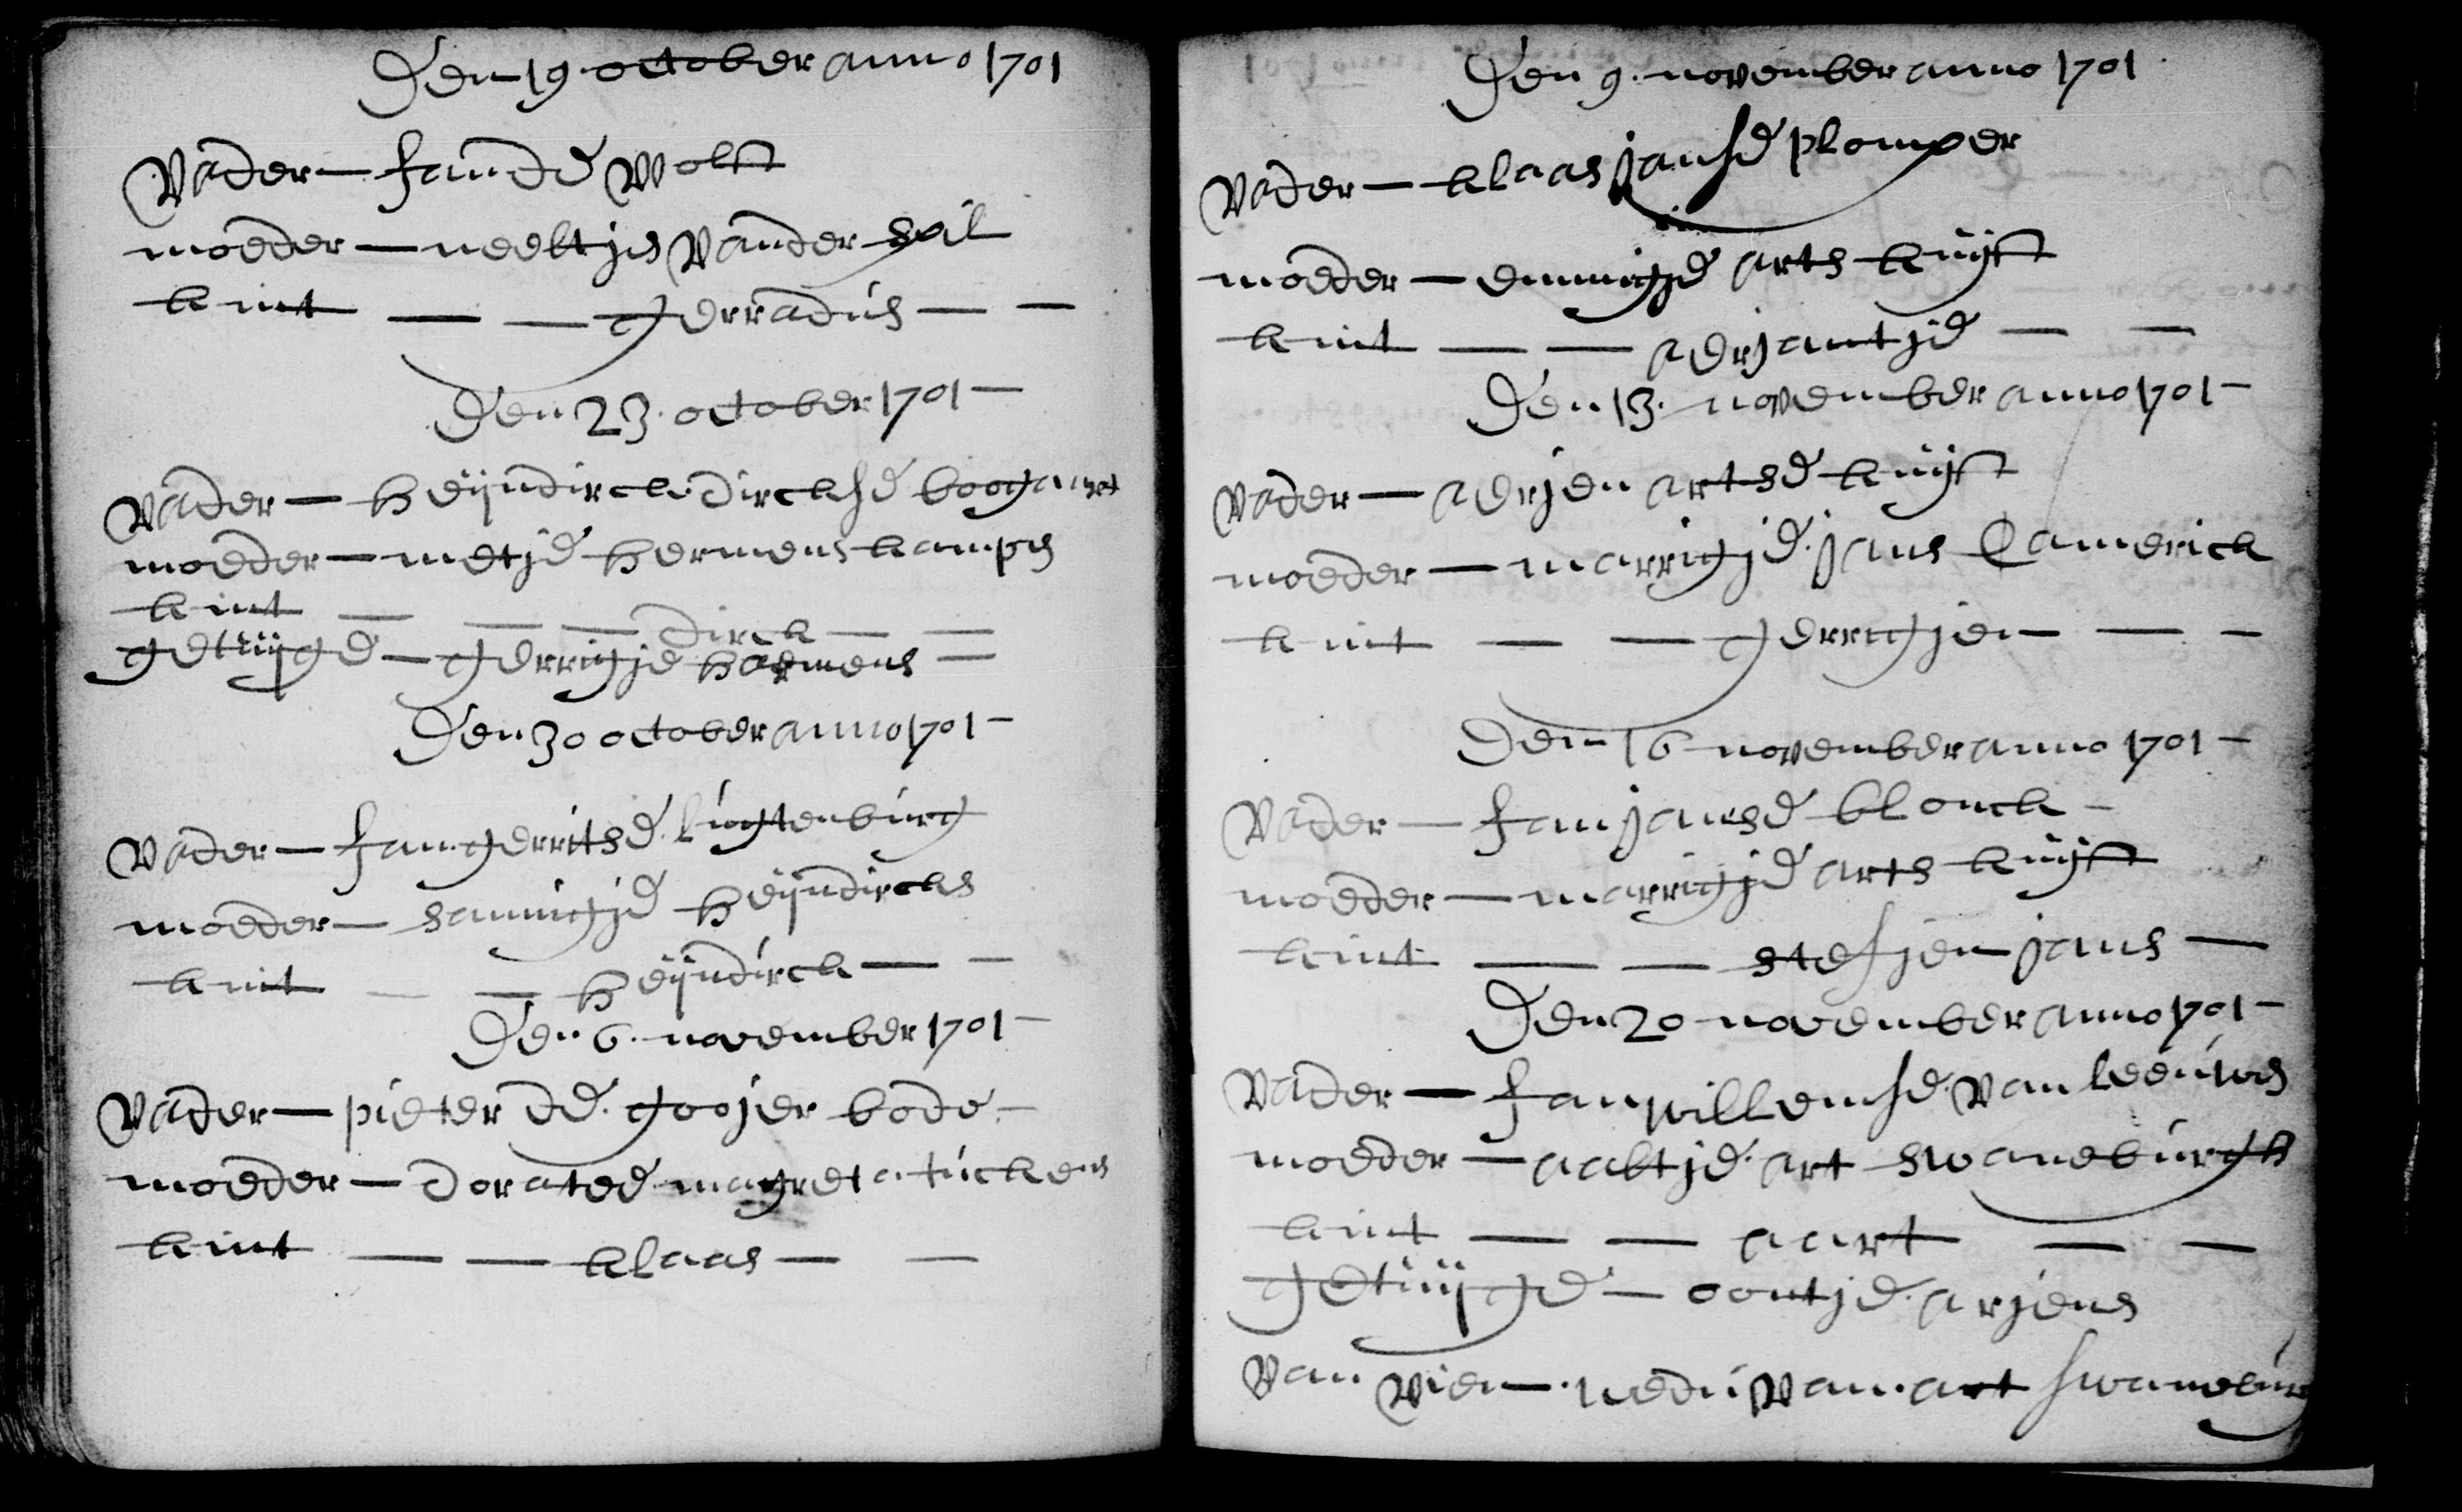 Den 19 october anno 1701
Vader — Jan de Wolff
moeder — neeltjes Vander
kint — — gerradus — —
Den 23. october 1701 —
Vader — heijndirck dirckse boogaart
moeder — metje hermens kamps
kint — — — dirck — —
getuijge — gerrigje harmens —
Den 30 october anno 1701 —
Vader — Jan gerritse lugtenburg
moeder — sannigje heijndircks
kint — — heijndirck — —
Den 6. november 1701 —
Vader — pieter de. goojer bode —
moeder — doratee magreta tuckens
kint — — klaas — —
Den 9. november anno 1701
Vader — klaas janse plomper
moeder — emmigje arts kuijff
kint — — aderjantje — —
Den 13. november anno 1701 —
Vader — aderjen artse kuijff
moeder — marrigje. jans Camerick
kint — — gerrigjen — —
Den 16 november anno 1701 —
Vader — Jan janse blonck —
moeder — marrigje arts kuijff
kint — — stefjen jans —
Den 20 november anno 1701 —
Vader — Jan willemse. van leeuwes
moeder — aaltje. art swaneburgh
kint — — aart — —
getuijge — oontje. arjens
Van Vien. wedu Van. art